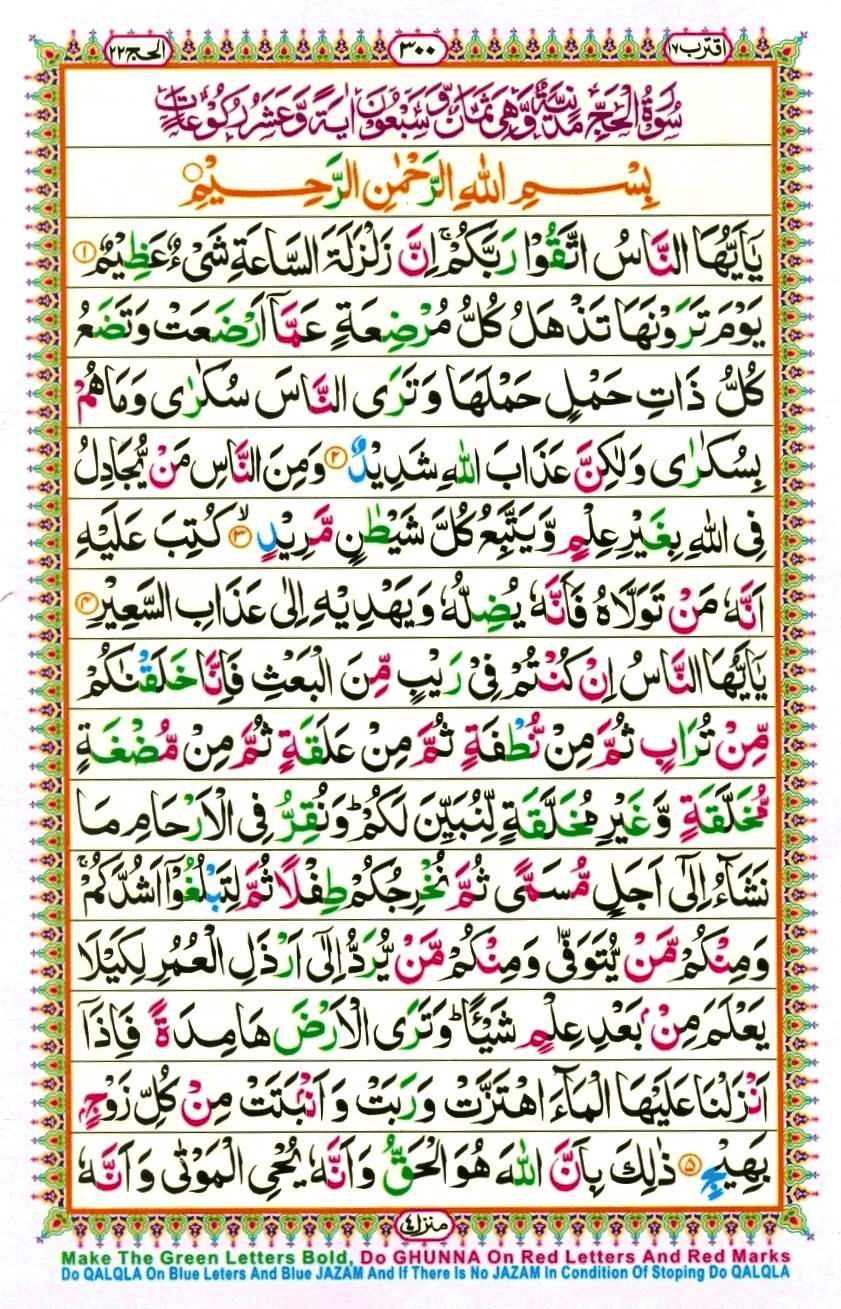 اقترب ١٧ ٣٠٠ الحج ٢٢
سُوْرَةُ الْحَجِّ مَدَنِيَّةٌ وَّهِىَ ثَمَانٍ وَّسَبْعُوْنَ اٰيَةً وَّعَشْرُ رُكُوْعَاتٍ
بِسْمِ اللّٰهِ الرَّحْمٰنِ الرَّحِيْمِ ○
يٰۤاَيُّهَا النَّاسُ اتَّقُوْا رَبَّكُمْ ۚ اِنَّ زَلْزَلَةَ السَّاعَةِ شَىْءٌ عَظِيْمٌ ①
يَوْمَ تَرَوْنَهَا تَذْهَلُ كُلُّ مُرْضِعَةٍ عَمَّاۤ اَرْضَعَتْ وَتَضَعُ
كُلُّ ذَاتِ حَمْلٍ حَمْلَهَا وَتَرَى النَّاسَ سُكٰرٰى وَمَا هُمْ
بِسُكٰرٰى وَلٰكِنَّ عَذَابَ اللّٰهِ شَدِيْدٌ ② وَمِنَ النَّاسِ مَنْ يُّجَادِلُ
فِى اللّٰهِ بِغَيْرِ عِلْمٍ وَّيَتَّبِعُ كُلَّ شَيْطٰنٍ مَّرِيْدٍ ۙ ③ كُتِبَ عَلَيْهِ
اَنَّهٗ مَنْ تَوَلَّاهُ فَاَنَّهٗ يُضِلُّهٗ وَيَهْدِيْهِ اِلٰى عَذَابِ السَّعِيْرِ ④
يٰۤاَيُّهَا النَّاسُ اِنْ كُنْتُمْ فِىْ رَيْبٍ مِّنَ الْبَعْثِ فَاِنَّا خَلَقْنٰكُمْ
مِّنْ تُرَابٍ ثُمَّ مِنْ نُّطْفَةٍ ثُمَّ مِنْ عَلَقَةٍ ثُمَّ مِنْ مُّضْغَةٍ
مُّخَلَّقَةٍ وَّغَيْرِ مُخَلَّقَةٍ لِّنُبَيِّنَ لَكُمْ ؕ وَنُقِرُّ فِى الْاَرْحَامِ مَا
نَشَآءُ اِلٰٓى اَجَلٍ مُّسَمًّى ثُمَّ نُخْرِجُكُمْ طِفْلًا ثُمَّ لِتَبْلُغُوْۤا اَشُدَّكُمْ ۚ
وَمِنْكُمْ مَّنْ يُّتَوَفّٰى وَمِنْكُمْ مَّنْ يُّرَدُّ اِلٰٓى اَرْذَلِ الْعُمُرِ لِكَيْلَا
يَعْلَمَ مِنْۢ بَعْدِ عِلْمٍ شَيْـًٔا ؕ وَتَرَى الْاَرْضَ هَامِدَةً فَاِذَاۤ
اَنْزَلْنَا عَلَيْهَا الْمَآءَ اهْتَزَّتْ وَرَبَتْ وَاَنْۢبَتَتْ مِنْ كُلِّ زَوْجٍۭ
بَهِيْجٍ ⑤ ذٰلِكَ بِاَنَّ اللّٰهَ هُوَ الْحَقُّ وَاَنَّهٗ يُحْىِ الْمَوْتٰى وَاَنَّهٗ
منزل ٤
Make The Green Letters Bold, Do GHUNNA On Red Letters And Red Marks
Do QALQLA On Blue Leters And Blue JAZAM And If There Is No JAZAM In Condition Of Stoping Do QALQLA